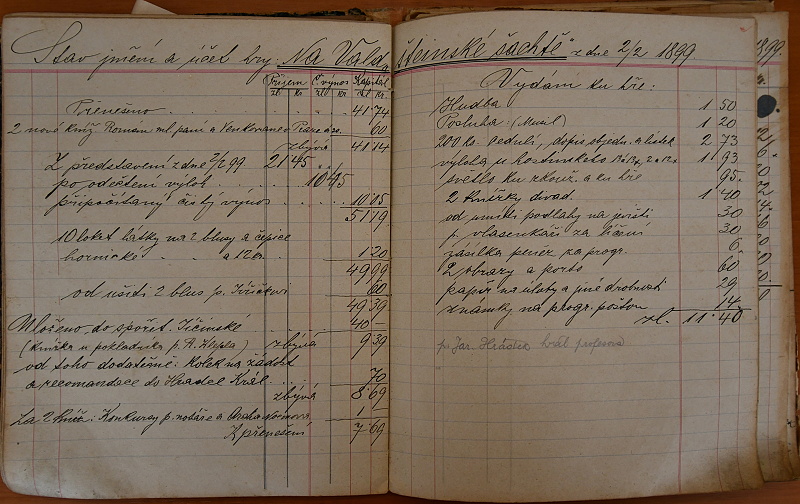 Stav jmění a účet hry: "Na Vald-
šteinské šachtě" z dne 2/2 1899
Příjem Č. výnos Kapitál
zl. kr. zl. kr. zl. kr.
Přenešeno . . . . . . 41 74
2 nové kníž. Roman ml. paní a Venkované 60
zbývá 41 14
Z představení z dne 2/2 99 21 45
po odečtení výloh . . . . 10 05
připočítaný čistý výnos . . . . 10 05
51 19
10 loket látky na 2 blusy a čepice
hornické . . a 12 kr. 1 20
49 99
od ušití 2 blus p. 60
49 39
Uloženo do spořit. Jičínské . . 40 —
(Knížka u pokladníka p. ) zbývá 9 39
od toho dodatečně: Kolek na žádost
a recomandace do Hradce Král. . . . 70
zbývá 8 69
Za 2 kníž: Konkursy p. notáře a 1 —
K přenešení 7 69
Vydání ku hře:
Hudba 1 50
Posluha: (Musil) 1 20
200 ks. cedulí, dopis. objedn. a lístek 2 73
výloha u 1 93
světlo ku zkouš. a ku hře 95
2 knížky divad. 1 40
od umytí podlahy na jevišti 30
p. vlasenkáři za líčení 30
zásilka peněz za progr. 6
2 obrazy a porto 60
papír na úlohy a jiné drobnosti 29
známky na progr. poštou 14
zl. 11 40
p. Jar. hrál profesora
1899